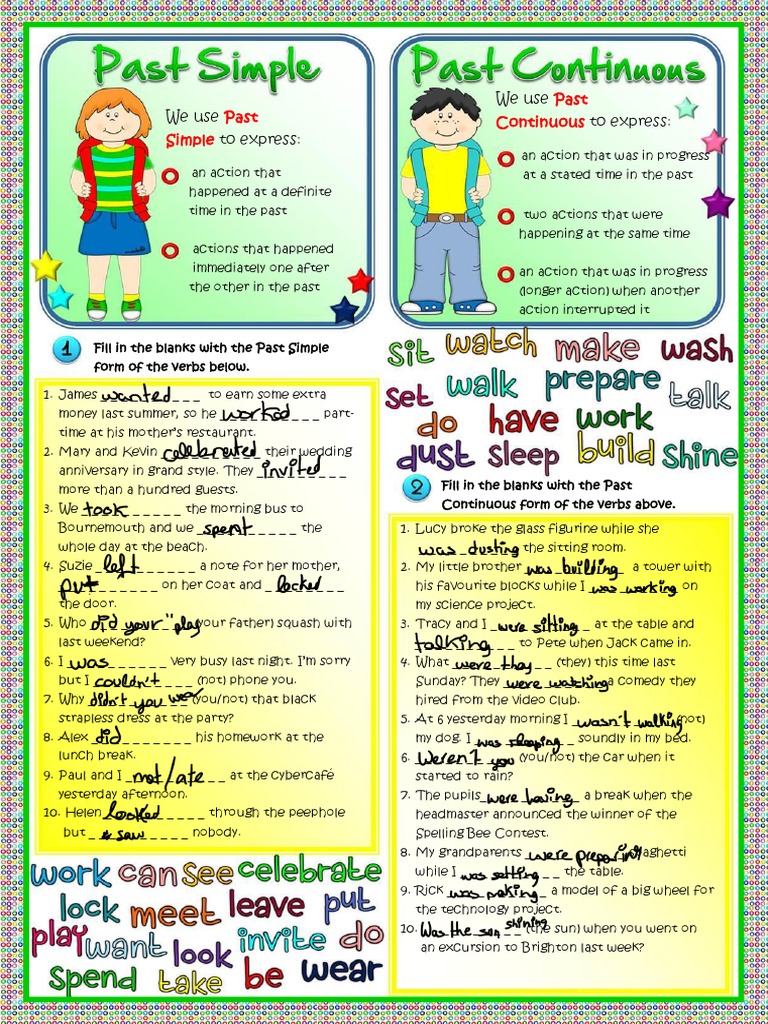 Past Simple
We use Past
Simple to express:
an action that
happened at a definite
time in the past
actions that happened
immediately one after
the other in the past
Past Continuous
We use Past
Continuous to express:
an action that was in progress
at a stated time in the past
two actions that were
happening at the same time
an action that was in progress
(longer action) when another
action interrupted it
1 Fill in the blanks with the Past Simple
form of the verbs below.
1. James wanted___ to earn some extra
money last summer, so he worked___ part-
time at his mother's restaurant.
2. Mary and Kevin celebrated their wedding
anniversary in grand style. They invited
more than a hundred guests.
3. We took_____ the morning bus to
Bournemouth and we spent_____ the
whole day at the beach.
4. Suzie left_____ a note for her mother,
put_____ on her coat and locked
the door.
5. Who did your "play your father) squash with
last weekend?
6. I was_____ very busy last night. I'm sorry
but I couldn't___ (not) phone you.
7. Why didn't you wear (you/not) that black
strapless dress at the party?
8. Alex did_______ his homework at the
lunch break.
9. Paul and I met/ate__ at the cybercafé
yesterday afternoon.
10. Helen looked____ through the peephole
but saw_____ nobody.
work can see celebrate
lock meet leave put
play want look invite do
spend take be wear
sit watch make wash
set walk prepare talk
do have work
dust sleep build shine
2 Fill in the blanks with the Past
Continuous form of the verbs above.
1. Lucy broke the glass figurine while she
was dusting the sitting room.
2. My little brother was building a tower with
his favourite blocks while I was working on
my science project.
3. Tracy and I were sitting_ at the table and
talking____ to Pete when Jack came in.
4. What were they__ (they) this time last
Sunday? They were watching a comedy they
hired from the Video Club.
5. At 6 yesterday morning I wasn't walking (not)
my dog. I was sleeping_ soundly in my bed.
6. Weren't you (you/not) the car when it
started to rain?
7. The pupils were having_ a break when the
headmaster announced the winner of the
Spelling Bee Contest.
8. My grandparents were preparing spaghetti
while I was setting__ the table.
9. Rick was making_ a model of a big wheel for
the technology project.
10. Was the sun shining (the sun) when you went on
an excursion to Brighton last week?